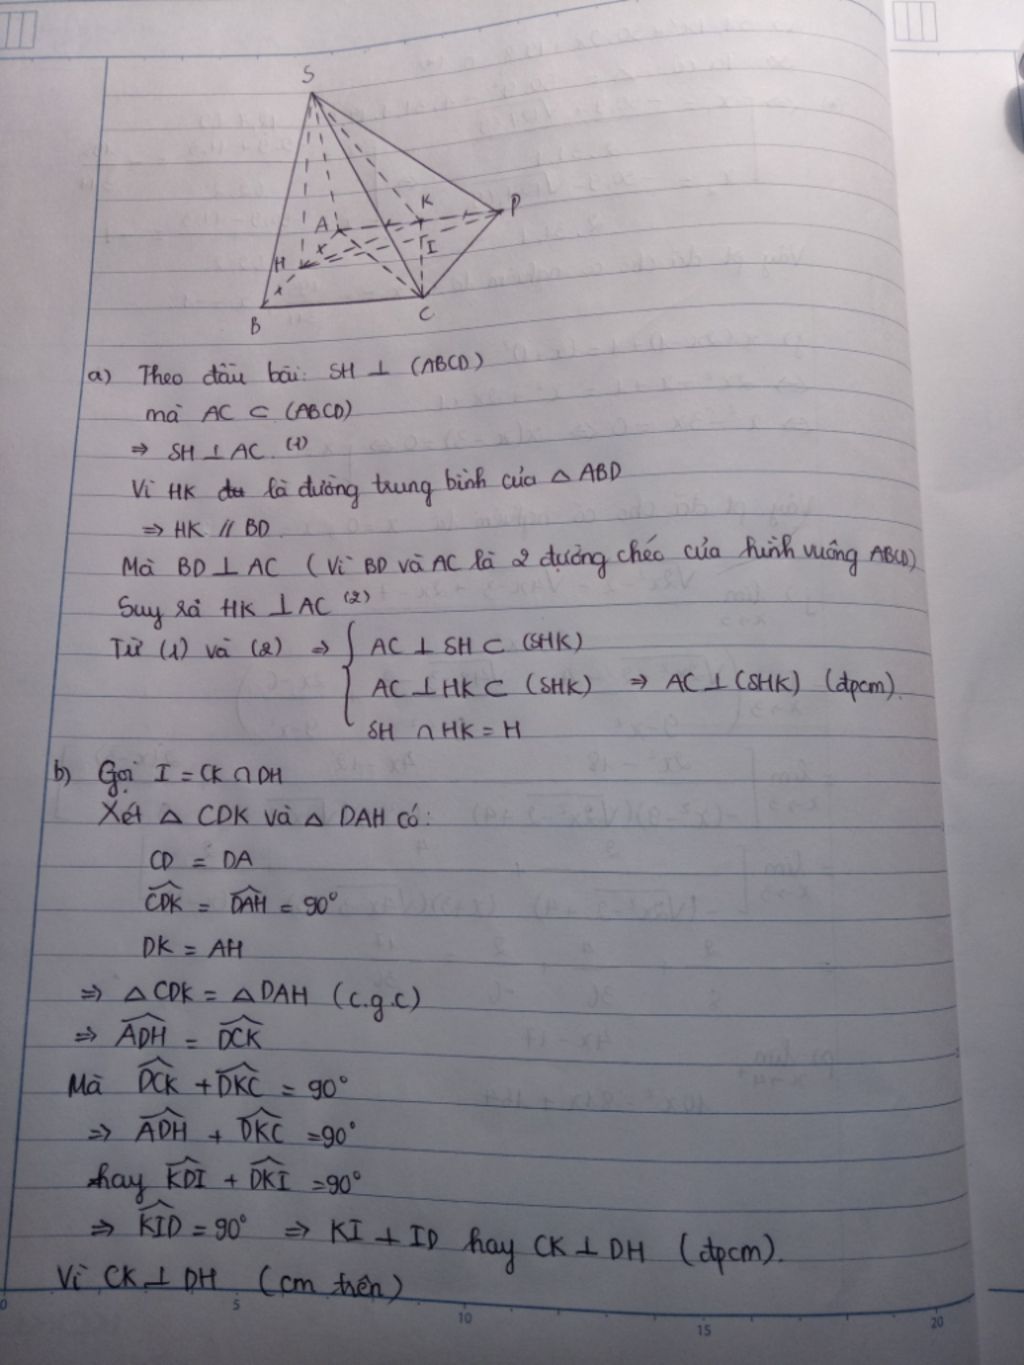 S
A
K
P
H
I
B
C
a) Theo đầu bài: SH ⊥ (ABCD)
mà AC ⊂ (ABCD)
⇒ SH ⊥ AC. (1)
Vì HK là đường trung bình của △ ABD
⇒ HK // BD.
Mà BD ⊥ AC (Vì BD và AC là 2 đường chéo của hình vuông ABCD)
Suy ra HK ⊥ AC (2)
Từ (1) và (2) ⇒ { AC ⊥ SH ⊂ (SHK)
AC ⊥ HK ⊂ (SHK) ⇒ AC ⊥ (SHK) (đpcm).
SH ∩ HK = H
b) Gọi I = CK ∩ DH
Xét △ CDK và △ DAH có:
CD = DA
\widehat{CDK} = \widehat{DAH} = 90°
DK = AH
⇒ △CDK = △DAH (c.g.c)
⇒ \widehat{ADH} = \widehat{DCK}
Mà \widehat{DCK} + \widehat{DKC} = 90°
⇒ \widehat{ADH} + \widehat{DKC} = 90°
hay \widehat{KDI} + \widehat{DKI} = 90°
⇒ \widehat{KID} = 90° ⇒ KI ⊥ ID hay CK ⊥ DH (đpcm).
Vì CK ⊥ DH (cm trên)
0 5 10 15 20